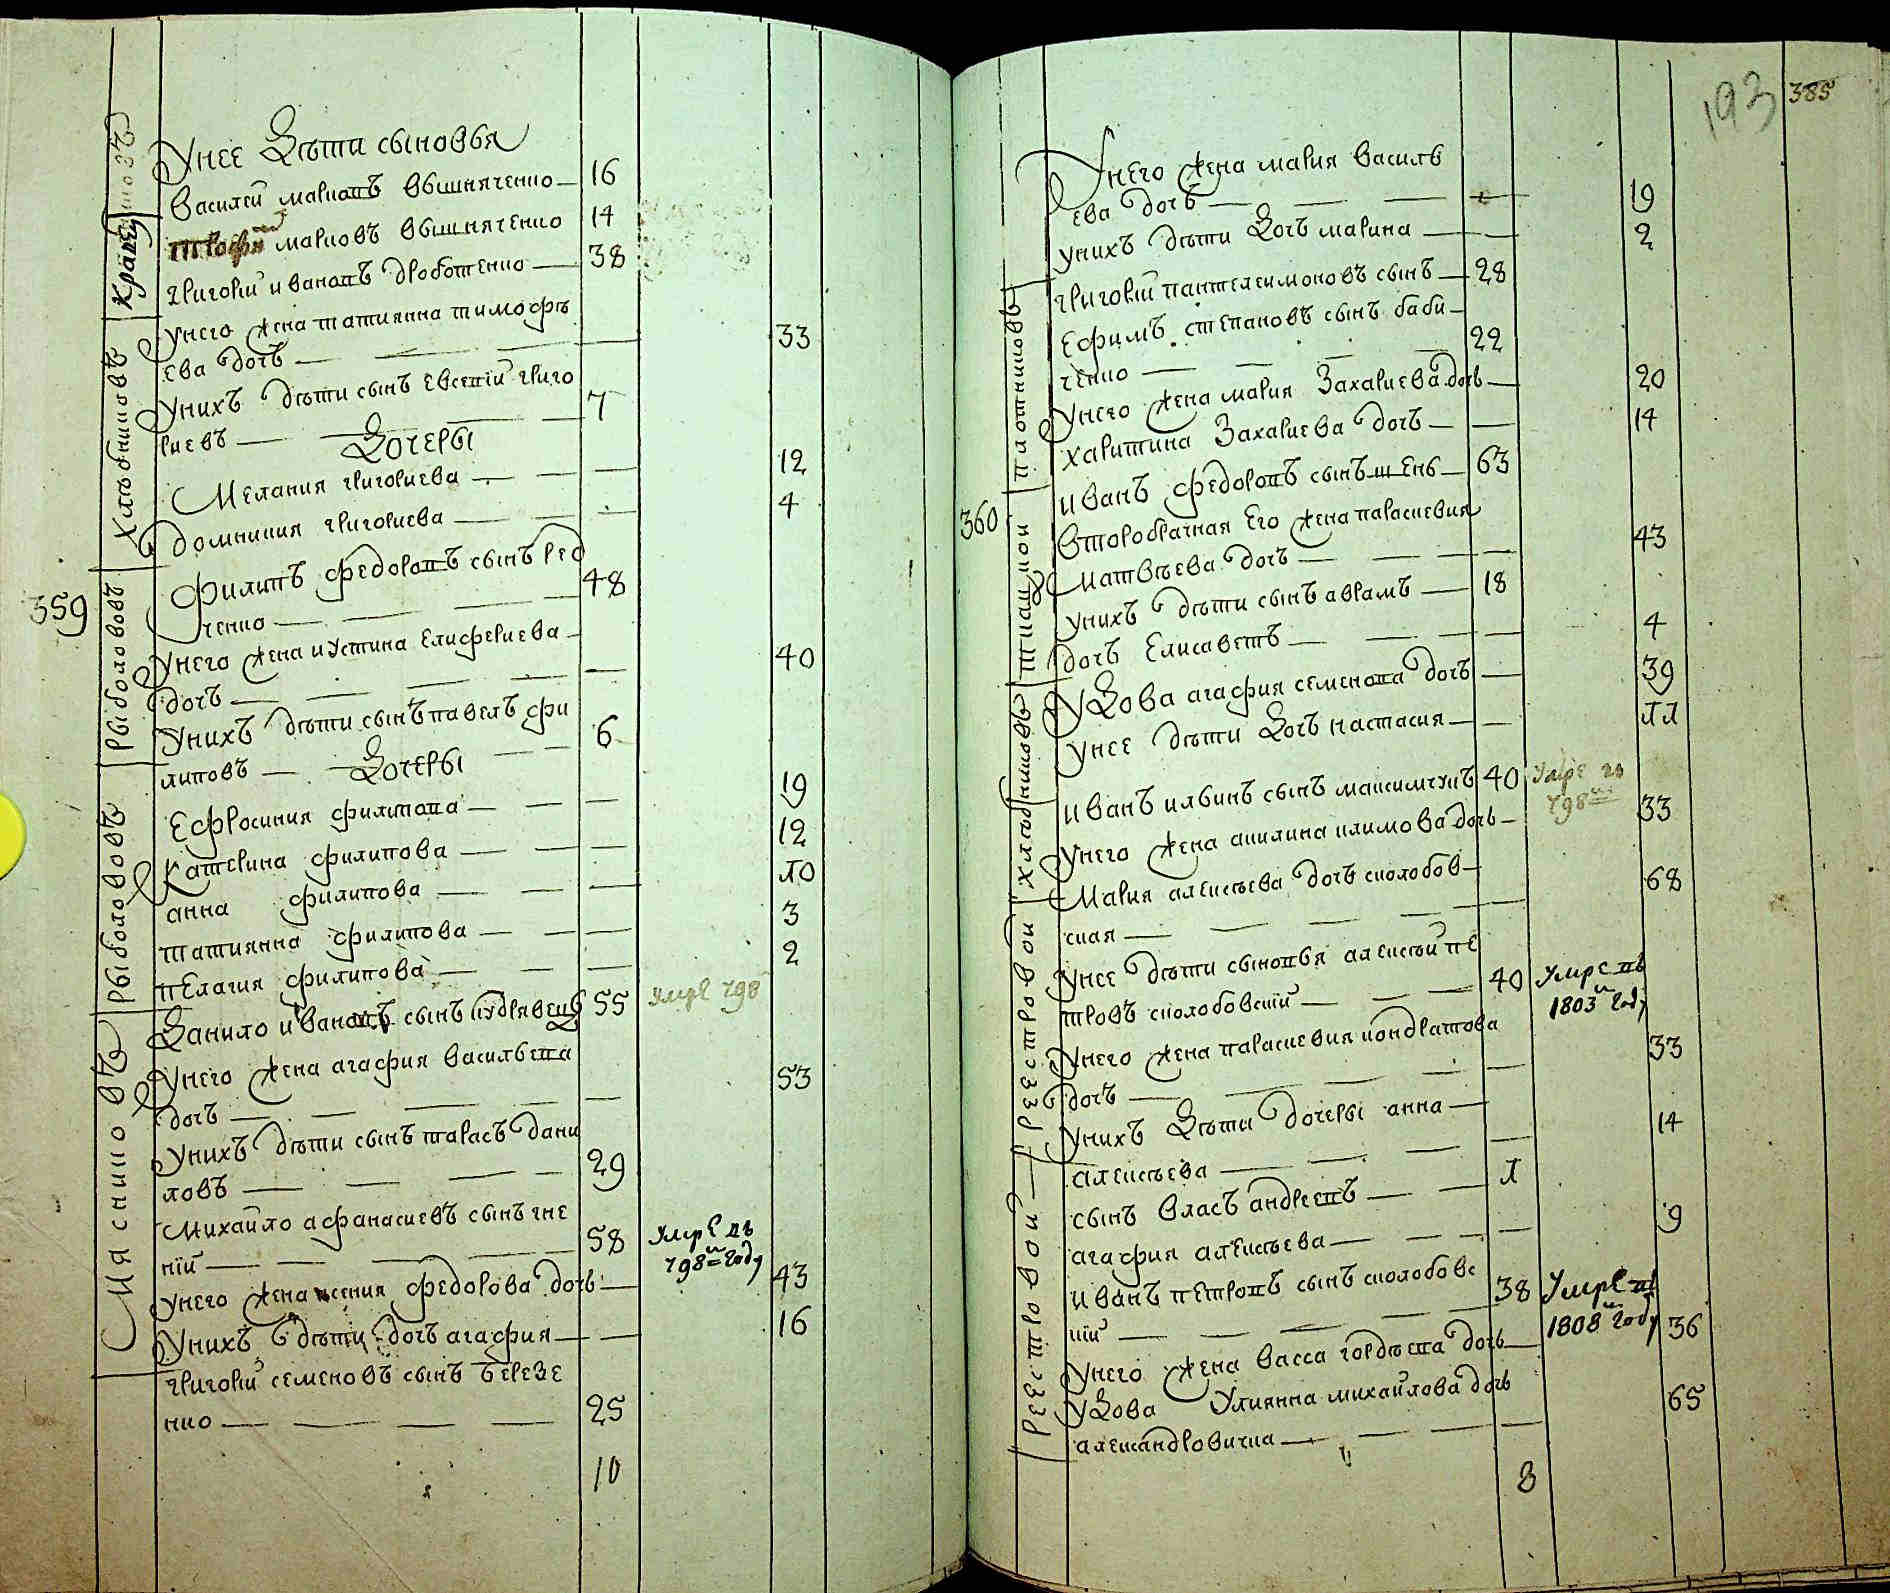 Унее Дѣти сыновья
василей марковъ вышняченко — 16
марковъ вышняченко 14
григорїй ивановъ дроботенко — 38
унего жена татиянна тимофѣ
ева дочь — 33
унихъ дѣти сынъ евсепїй григо
риевъ — 7
Дочеры
Мелания григориева — 12
домникия григориева — 4
359
Филипъ федоровъ сынъ ред
ченко — 48
унего жена иустина елисфериева —
дочь — 40
унихъ дѣти сынъ павелъ фи
липовъ — 6
Дочеры
Ефросиния филипова — 19
катерина филипова — 12
анна филипова — 10
татиянна филипова — 3
пелагия филипова — 2
Данило ивановъ сынъ кудрявецъ 55 умре 798
унего жена агафия васильева
дочь — 53
унихъ дѣти сынъ тарасъ дани
ловъ — 29
михайло афанасиевъ сынъ гне
кїй — 58 умре въ
798м году
унего жена ксения федорова дочь — 43
унихъ дѣти дочь агафия — 16
григорїй семеновъ сынъ березе
нко — 25
10
Крамниковъ
Хлѣбниковъ
Рыболововъ
Рыболововъ
Мясниковъ
193 385
Унего жена мария василь
ева дочь — 19
унихъ дѣти Дочь марина — 2
григорїй пантелеимоновъ сынъ — 28
Ефимъ степановъ сынъ баби —
ченко — 22
унего жена мария Захариева дочь — 20
харитина Захариева дочь — 14
360
иванъ федоровъ сынъ шень — 63
второбрачная его жена параскевия
матвѣева дочь — 43
унихъ дѣти сынъ аврамъ — 18
дочь Елисаветъ — 4
уДова агафия семенова дочь — 39
унее дѣти Дочь настасия — 11
иванъ ильинъ сынъ максимчукъ 40 умре въ
798м
унего жена акилина климова дочь — 33
Мария алексѣева дочь сколобов —
ская — 68
унее дѣти сыновья алексѣй пе
тровъ сколобовскїй — 40 умре въ
1803м году
унего жена параскевия кондратова
дочь — 33
унихъ Дѣти дочеры анна —
алексѣева — 14
сынъ власъ андреевъ — 1
агафия алексѣева — 9
иванъ петровъ сынъ сколобовс
кїй — 38 умре въ
1808м году
унего жена васса гордѣева дочь — 36
уДова Улиянна михайлова дочь
александровична — 65
8
плотниковъ
хлѣбниковъ
реестровой
реестровой